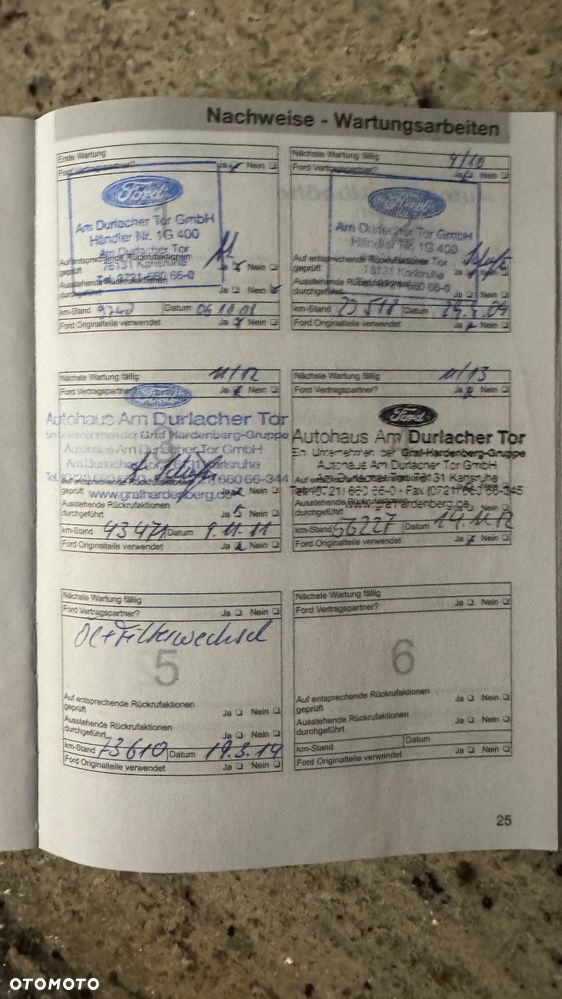 Nachweise - Wartungsarbeiten
Erste Wartung
Ford Vertragspartner? Ja Nein
Ford
Am Durlacher Tor GmbH
Händler Nr. 1G 400
Am Durlacher Tor
76131 Karlsruhe
Tel. 0721-660 66-0
Auf entsprechende Rückrufaktionen
geprüft Ja Nein
Ausstehende Rückrufaktionen
durchgeführt Ja Nein
km-Stand 9240 Datum 06.10.08
Ford Originalteile verwendet Ja Nein
Nächste Wartung fällig 9/10
Ford Vertragspartner? Ja Nein
Ford
Am Durlacher Tor GmbH
Händler Nr. 1G 400
Am Durlacher Tor
76131 Karlsruhe
Tel. 0721-660 66-0
Auf entsprechende Rückrufaktionen
geprüft Ja Nein
Ausstehende Rückrufaktionen
durchgeführt Ja Nein
km-Stand Datum
Ford Originalteile verwendet Ja Nein
Nächste Wartung fällig 11/12
Ford Vertragspartner? Ja Nein
Ford
Autohaus Am Durlacher Tor
Ein Unternehmen der Graf-Hardenberg-Gruppe
Autohaus Am Durlacher Tor GmbH
Am Durlacher Tor 76131 Karlsruhe
www.grafhardenberg.de
geprüft Ja Nein
Ausstehende Rückrufaktionen
durchgeführt Ja Nein
km-Stand 43471 Datum 9.11.11
Ford Originalteile verwendet Ja Nein
Nächste Wartung fällig 11/13
Ford Vertragspartner? Ja Nein
Ford
Autohaus Am Durlacher Tor
Ein Unternehmen der Graf-Hardenberg-Gruppe
Autohaus Am Durlacher Tor GmbH
Am Durlacher Tor 76131 Karlsruhe
Telefon (0721) 660 66-0 - Fax (0721) 660 66-345
www.grafhardenberg.de
Ausstehende Rückrufaktionen
durchgeführt Ja Nein
km-Stand 56227 Datum 14.11.12
Ford Originalteile verwendet Ja Nein
Nächste Wartung fällig
Ford Vertragspartner? Ja Nein
Öl + Filterwechsel
5
Auf entsprechende Rückrufaktionen
geprüft Ja Nein
Ausstehende Rückrufaktionen
durchgeführt Ja Nein
km-Stand 73610 Datum 19.3.14
Ford Originalteile verwendet Ja Nein
Nächste Wartung fällig
Ford Vertragspartner? Ja Nein
6
Auf entsprechende Rückrufaktionen
geprüft Ja Nein
Ausstehende Rückrufaktionen
durchgeführt Ja Nein
km-Stand Datum
Ford Originalteile verwendet Ja Nein
25
OTOMOTO